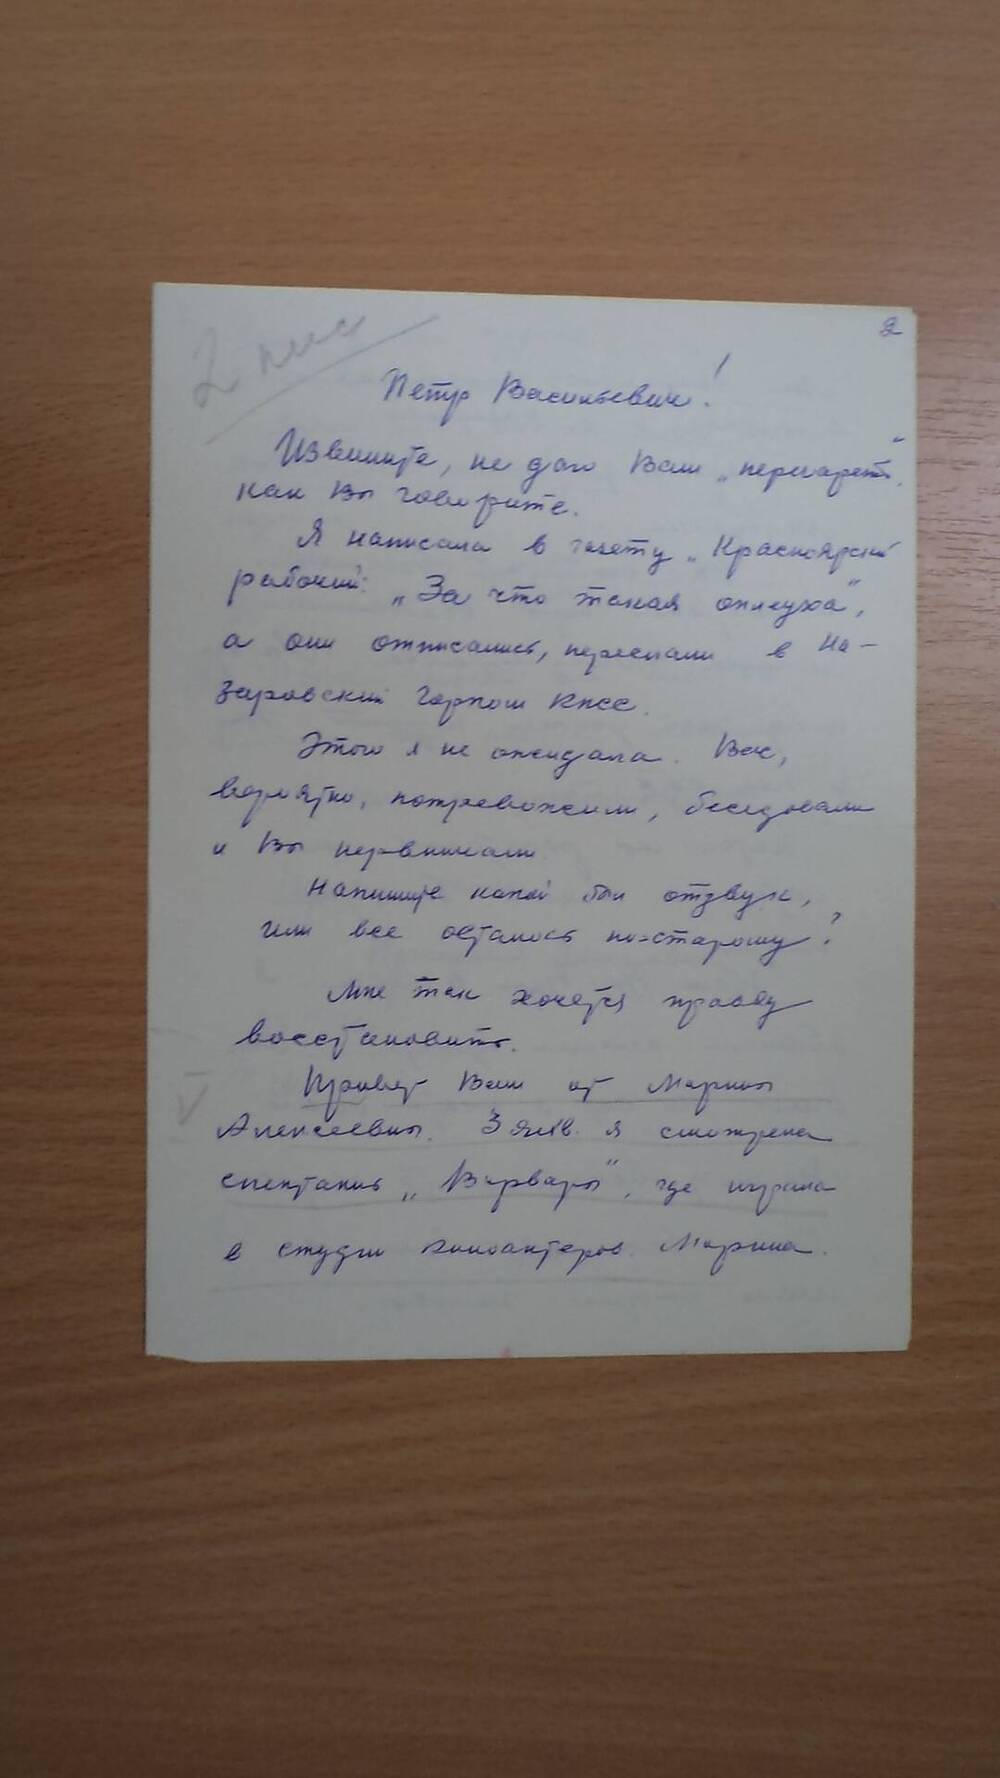 2
2 пис
Петр Васильевич!
Извините, не даю Вам „перегореть",
как Вы говорите.
Я написала в газету „Красноярский
рабочий: „За что такая оплеуха",
а они отписались, переслали в На-
заровский горком КПСС.
Этого я не ожидала. Вас,
вероятно, потревожили, беседовали
и Вы нервничали
Напишите какой был отзвук,
или все осталось по-старому?
Мне так хочется правду
восстановить.
Привет Вам от Марины
Алексеевны. 3 янв. я смотрела
спектакль „Варвары", где играла
в студии киноактеров Марина.